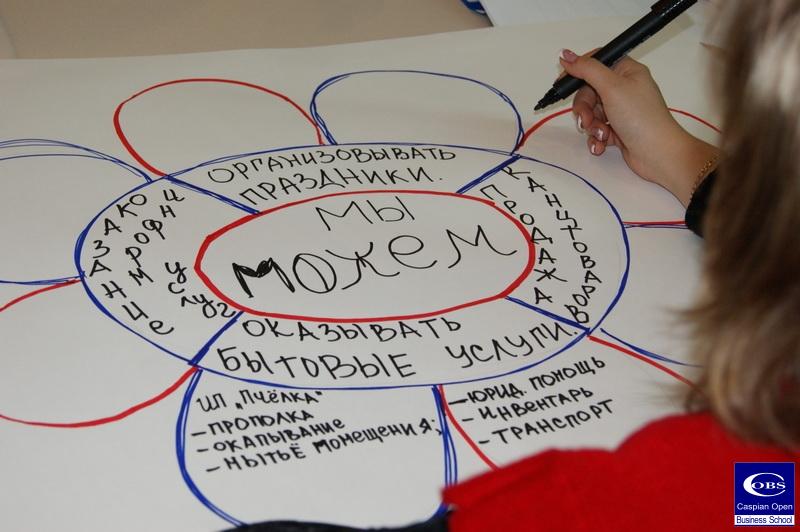 ОРГАНИЗОВЫВАТЬ
ПРАЗДНИКИ.
МЫ
МОЖЕМ
КАНЦТОВАРОВ
ПРОДАЖА
ОКАЗЫВАТЬ
БЫТОВЫЕ УСЛУГИ.
ИП „ПЧЁЛКА"
- ПРОПОЛКА
- ОКАПЫВАНИЕ
- МЫТЬЁ ПОМЕЩЕНИЯ;
- ЮРИД. ПОМОЩЬ
- ИНВЕНТАРЬ
- ТРАНСПОРТ
COBS
Caspian Open
Business School